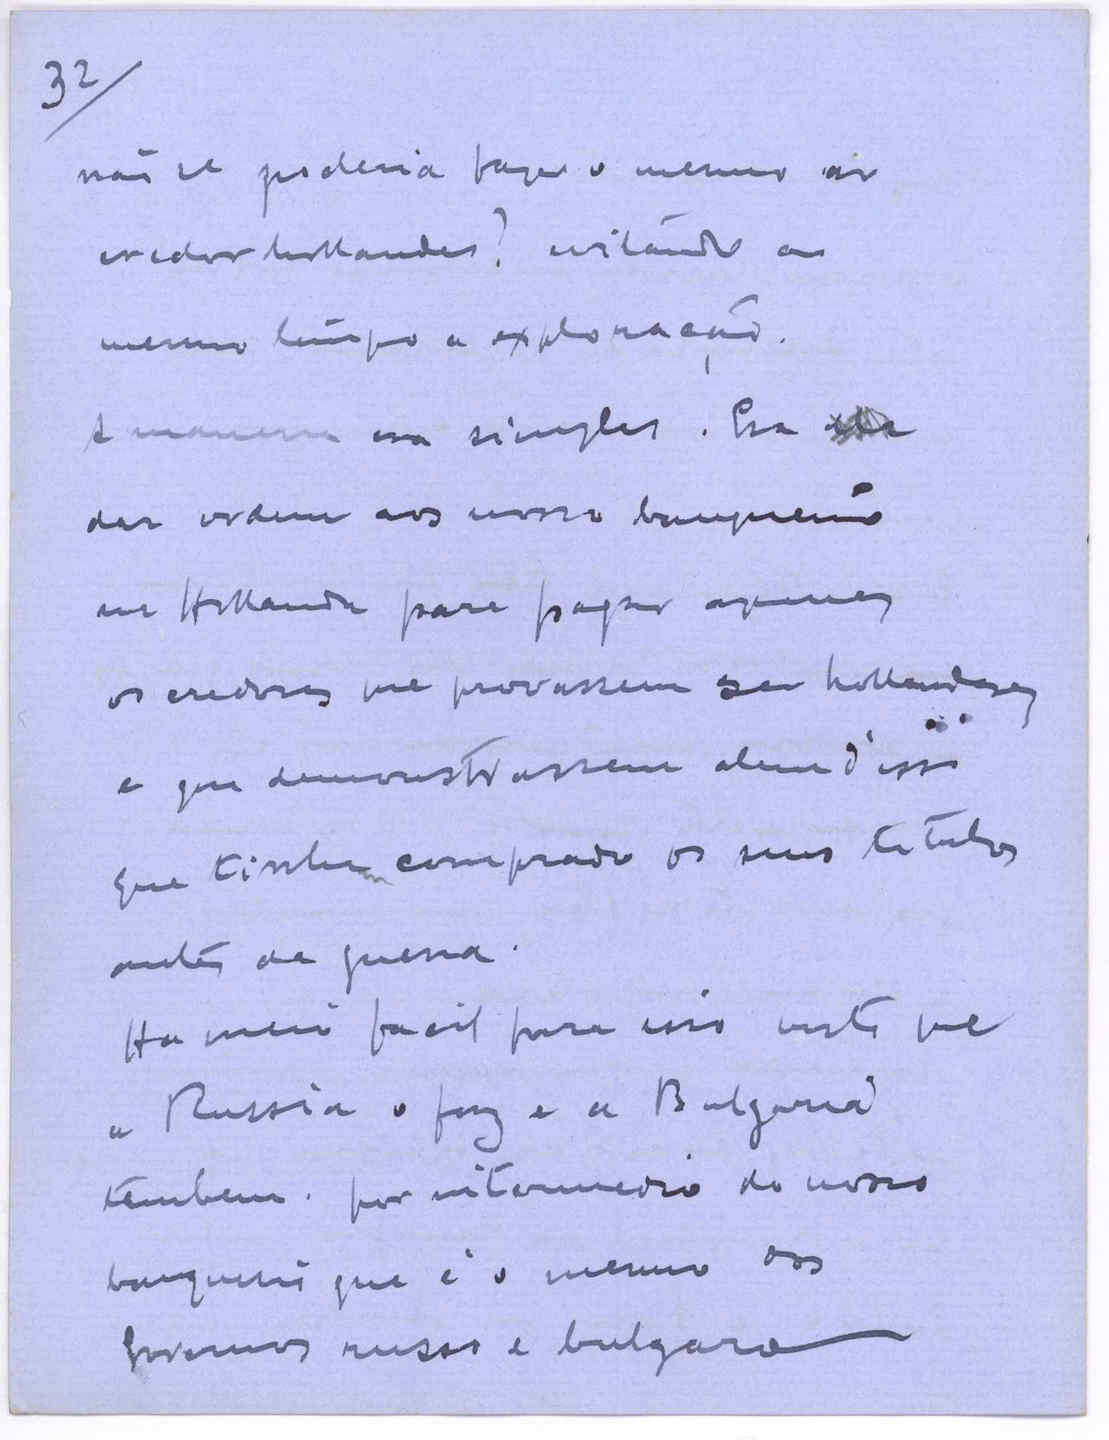 32/
não se poderia fazer o mesmo ao
credor hollandes? evitando ao
mesmo tempo a exploração.
A maneira era simples. Era
dar ordem aos nosso banqueiro
na Hollanda para pagar apenas
os credores que provassem ser hollandeses
e que demonstrassem alem d'isso
que tinham comprado os seus titulos
antes da guerra.
Ha meio facil para isso visto que
a Russia o faz e a Bulgaria
tambem. por intermedio do nosso
banqueiro que é o mesmo dos
governos russo e bulgaro